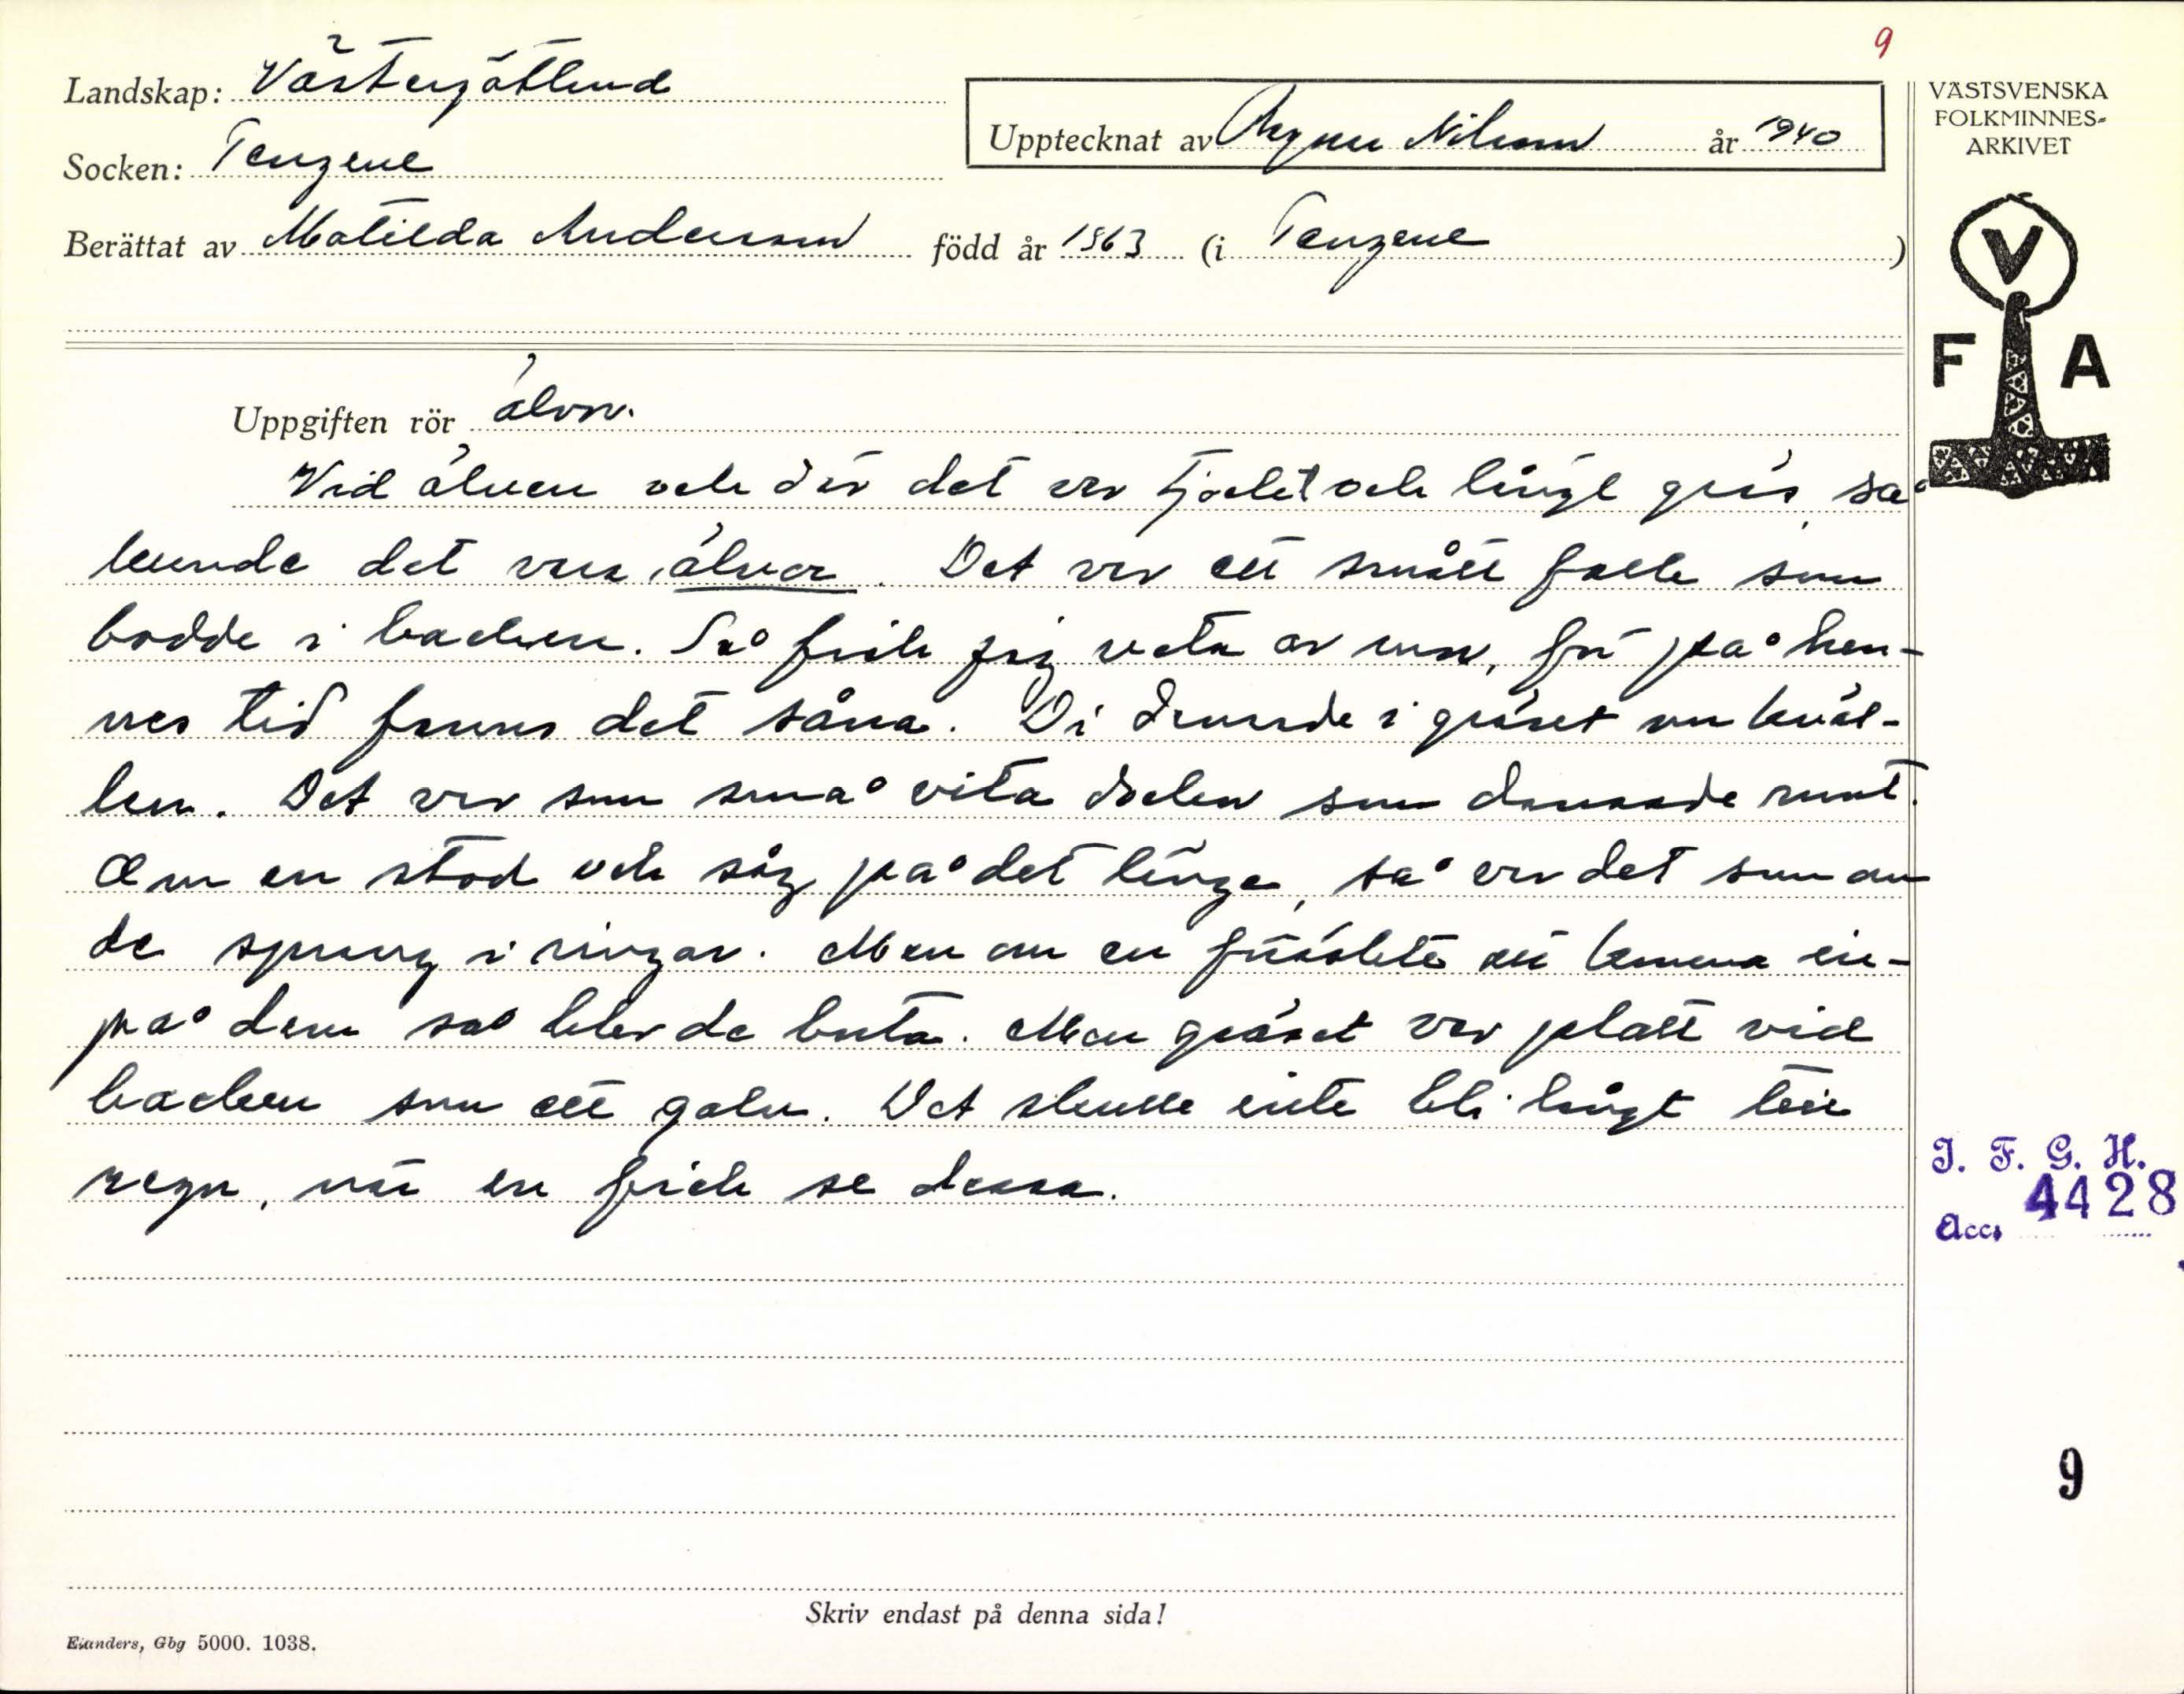 9
Landskap: Västergötland
Upptecknat av Ragnar Nilsson år 1940
Socken: Tengene
Berättat av Matilda Andersson född år 1863 (i Tengene)
VÄSTSVENSKA
FOLKMINNES-
ARKIVET
V
F A
Uppgiften rör älvor.
Vid älven och där det var tjockt och långt gräs, så
kunde det vara älvor. Det var ett smått folk som
bodde i backen. Så fick jag veta av mor, för på hen-
nes tid fanns det såna. Di dansade i gräset om kväl-
len. Det var som små vita dockor som dansade runt.
Om en stod och såg på det länge, så var det som om
de sprang i ringar. Men om en försökte att komma in-
på dem så blev de borta. Men gräset var platt vid
backen som ett golv. Det skulle inte bli långt till
regn, när en fick se dessa.
I. F. G. H.
Acc. 4428
9
Skriv endast på denna sida!
Elanders, Gbg 5000. 1038.